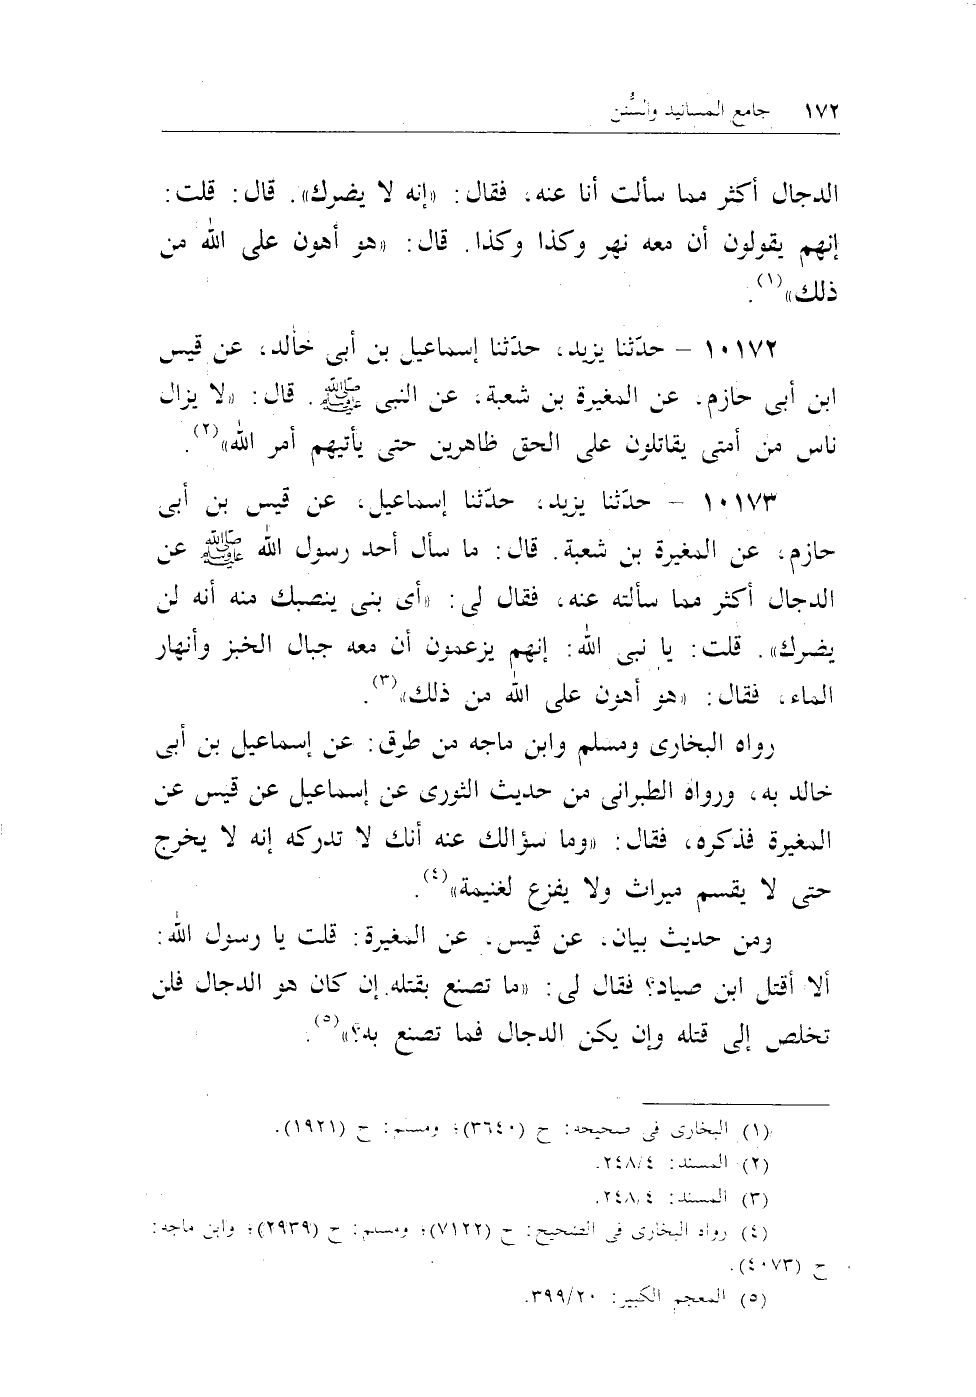 ١٧٢ جامع المسانيد والسُّنن
الدجال أكثر مما سألت أنا عنه، فقال: «إنه لا يضرك». قال: قلت:
إنهم يقولون أن معه نهر وكذا وكذا. قال: «هو أهون على الله من
ذلك»(١).
١٠١٧٢ – حدّثنا يزيد، حدّثنا إسماعيل بن أبى خالد، عن قيس
ابن أبى حازم، عن المغيرة بن شعبة، عن النبى ﷺ. قال: «لا يزال
ناس من أمتى يقاتلون على الحق ظاهرين حتى يأتيهم أمر الله»(٢).
١٠١٧٣ – حدّثنا يزيد، حدّثنا إسماعيل، عن قيس بن أبى
حازم، عن المغيرة بن شعبة. قال: ما سأل أحد رسول الله ﷺ عن
الدجال أكثر مما سألته عنه، فقال لى: «أى بنى ينصبك منه أنه لن
يضرك». قلت: يا نبى الله: إنهم يزعمون أن معه جبال الخبز وأنهار
الماء، فقال: «هو أهون على الله من ذلك»(٣).
رواه البخارى ومسلم وابن ماجه من طرق: عن إسماعيل بن أبى
خالد به، ورواه الطبرانى من حديث الثورى عن إسماعيل عن قيس عن
المغيرة فذكره، فقال: «وما سؤالك عنه أنك لا تدركه إنه لا يخرج
حتى لا يقسم ميراث ولا يفزع لغنيمة»(٤).
ومن حديث بيان، عن قيس، عن المغيرة: قلت يا رسول الله:
ألا أقتل ابن صياد؟ فقال لى: «ما تصنع بقتله إن كان هو الدجال فلن
تخلص إلى قتله وإن يكن الدجال فما تصنع به؟»(٥).
(١) البخارى فى صحيحه: ح (٣٦٤٠)؛ ومسلم: ح (١٩٢١).
(٢) المسند: ٢٤٨/٤.
(٣) المسند: ٢٤٨/٤.
(٤) رواه البخارى فى الصحيح: ح (٧١٢٢)؛ ومسلم: ح (٢٩٣٩)؛ وابن ماجه:
ح (٤٠٧٣).
(٥) المعجم الكبير: ٣٩٩/٢٠.